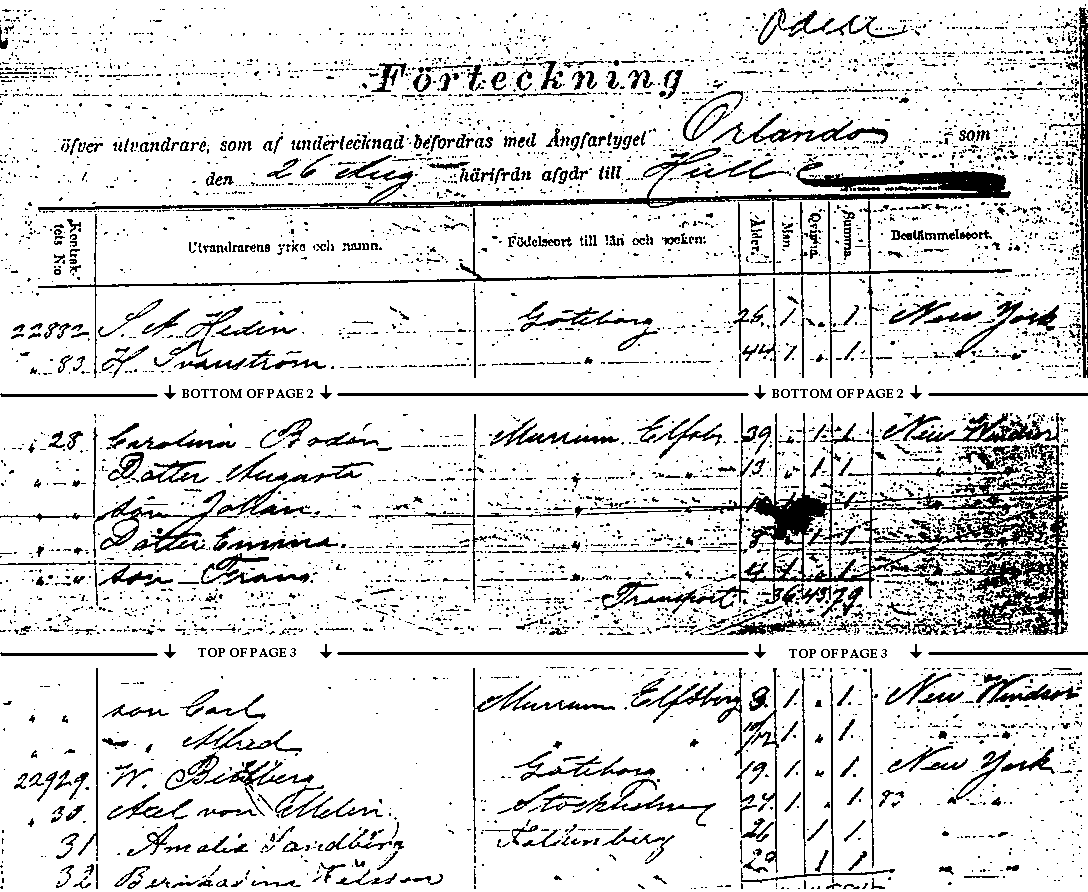 Förteckning
öfver utvandrare, som af undertecknad befordras med Ångfartyget Orlando som
den 26 Aug härifrån afgår till Hull
Kontrakt­ets N:o Utvandrarens yrke och namn. Födelseort till län och socken. Ålder. Man. Qvinna. Summa. Bestämmelseort.
22882 S A Hedin Göteborg 26. 1 „ 1 New York
„ 83 H. Svanström „ 44 1. „ 1. „ „
BOTTOM OF PAGE 2 BOTTOM OF PAGE 2
„ 28 Carolina Bodén Murrum Elfsb 39 „ 1 1 New Windsor
„ „ Dotter Augusta „ „ 13 „ 1 1 „ „
„ „ son Johan „ „ 1 „
„ „ Dotter Emma. „ „ 8 1 1 „
„ „ son Frans. „ „ 4 1 „ 1 „
Transport. 36 43 79.
TOP OF PAGE 3 TOP OF PAGE 3
„ „ son Carl Murrum Elfsborg 3. 1. „ 1. New Windsor
„ „ „ Alfred „ „ 1. „ 1. „ „
22929. W. Göteborg 19. 1. „ 1. New York
„ 30. Axel von Melin Stockholm 24. 1. „ 1. 83 „ „
31 Amalia Sandberg Falkenberg 26 1 1. „ „
32 Nilsson 29 1 1 „ „